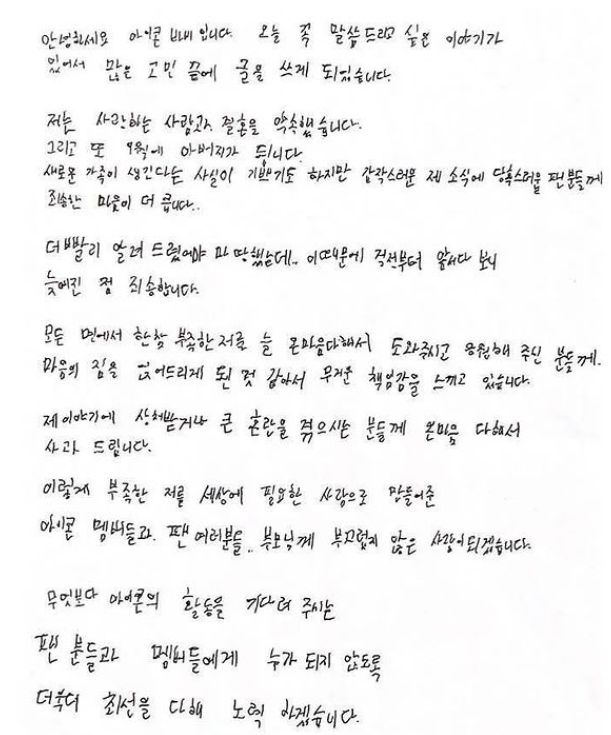 안녕하세요 아이콘 바비입니다. 오늘 꼭 말씀드리고 싶은 이야기가
있어서 많은 고민 끝에 글을 쓰게 되었습니다.
저는 사랑하는 사람과 결혼을 약속했습니다.
그리고 또 9월에 아버지가 됩니다.
새로운 가족이 생긴다는 사실이 기쁘기도 하지만 갑작스러운 제 소식에 당혹스러울 팬분들께
죄송한 마음이 더 큽니다..
더 빨리 알려 드렸어야 마땅했는데.. 이 때문에 걱정부터 앞서다 보니
늦어진 점 죄송합니다.
모든 면에서 한참 부족한 저를 늘 온마음다해서 도와주시고 응원해 주신 분들께.
마음의 짐을 얹어드리게 된 것 같아서 무거운 책임감을 느끼고 있습니다.
제 이야기에 상처받거나 큰 혼란을 겪으시는 분들께 온마음 다해서
사과 드립니다.
이렇게 부족한 저를 세상에 필요한 사람으로 만들어준
아이콘 멤버들과. 팬 여러분들.. 부모님께 부끄럽지 않은 사람이 되겠습니다.
무엇보다 아이콘의 활동을 기다려 주시는
팬 분들과 멤버들에게 누가 되지 않도록
더욱더 최선을 다해 노력 하겠습니다.